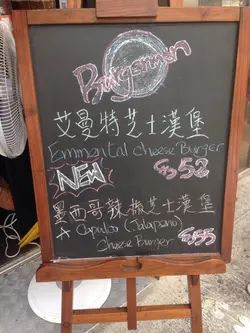 Burgerman
艾曼特芝士漢堡
Emmental Cheese Burger
$52
NEW
墨西哥辣椒芝士漢堡
Acapulco (Jalapeno)
Cheese Burger $55